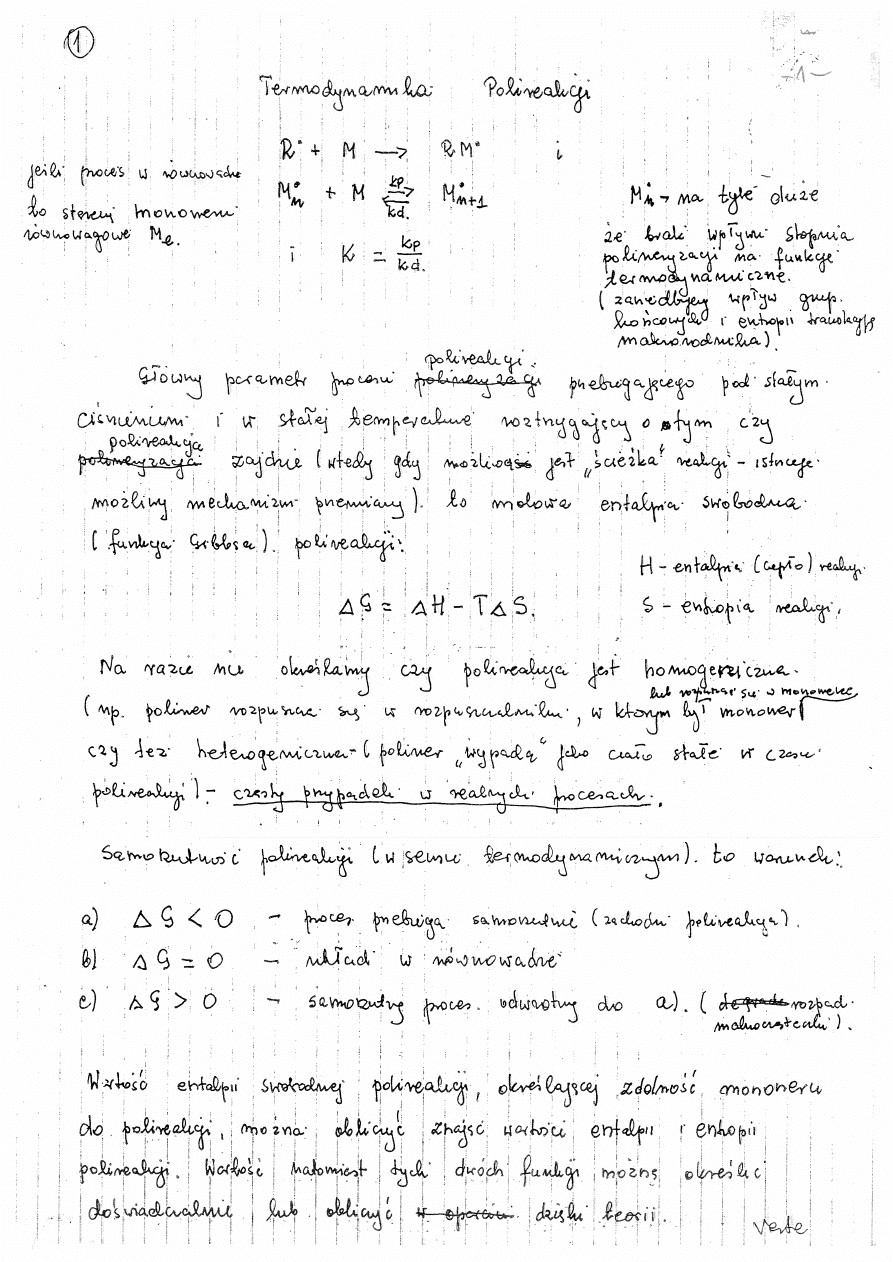 1
-1-
Termodynamika Polireakcji
R• + M → RM• i
jeśli proces w równowadze
to stężenie monomeru
równowagowe Me.
M•n + M ⇌ M•n+1
kp
kd.
i K = kp/kd.
M•n → na tyle duże
że brak wpływu stopnia
polimeryzacji na funkcje
termodynamiczne.
(zaniedbujemy wpływ grup
końcowych i entropii translacyj
makrorodnika).
polireakcji.
Główny parametr procesu polimeryzacji przebiegającego pod stałym
ciśnieniem i w stałej temperaturze rozstrzygający o tym czy
polireakcja
polimeryzacja zajdzie (wtedy gdy możliwa jest „ścieżka" reakcji - istnieje
możliwy mechanizm przemiany). to molowa entalpia swobodna
(funkcja Gibbsa). polireakcji:
H - entalpia (ciepło) reakcji.
ΔG = ΔH - TΔS.
S - entropia reakcji.
Na razie nie określamy czy polireakcja jest homogeniczna.
lub rozpuszcza się w monomerze
(np. polimer rozpuszcza się w rozpuszczalniku, w którym był monomer
czy też heterogeniczna - (polimer „wypada" jako ciało stałe w czasie
polireakcji) - częsty przypadek w realnych procesach.
Samorzutność polireakcji (w sensie termodynamicznym). to warunek:
a) ΔG < 0 - proces przebiega samorzutnie (zachodzi polireakcja).
b) ΔG = 0 - układ w równowadze
c) ΔG > 0 - samorzutny proces odwrotny do a). (rozpad
makrocząsteczki).
Wartość entalpii swobodnej polireakcji, określającej zdolność monomeru
do polireakcji, można obliczyć znając wartości entalpii i entropii
polireakcji. Wartość natomiast tych dwóch funkcji można określić
doświadczalnie lub obliczyć w oparciu dzięki teorii.
Verte